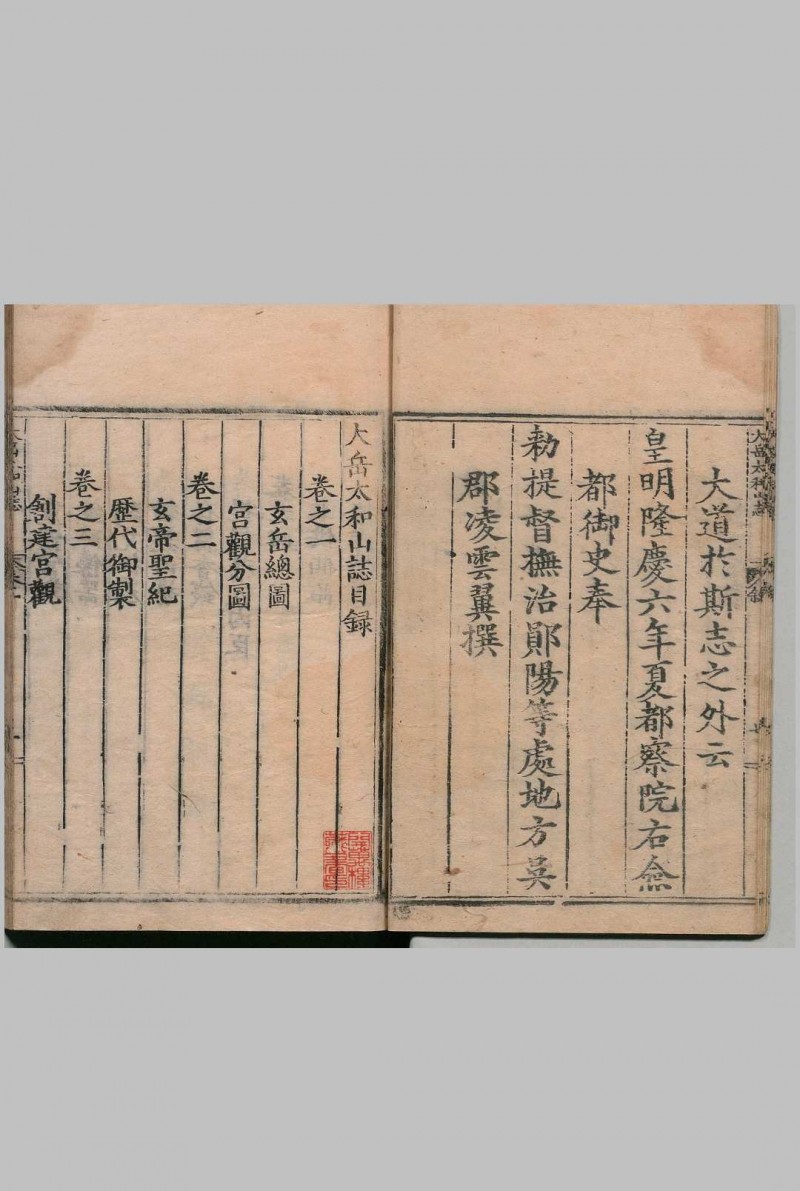 大道於斯志之外云
皇明隆慶六年夏都察院右僉
都御史奉
勑提督撫治鄖陽等處地方吳
郡凌雲翼撰
大岳太和山誌目録
卷之一
玄岳總圖
宮觀分圖
卷之二
玄帝聖紀
歷代御製
卷之三
創建宮觀